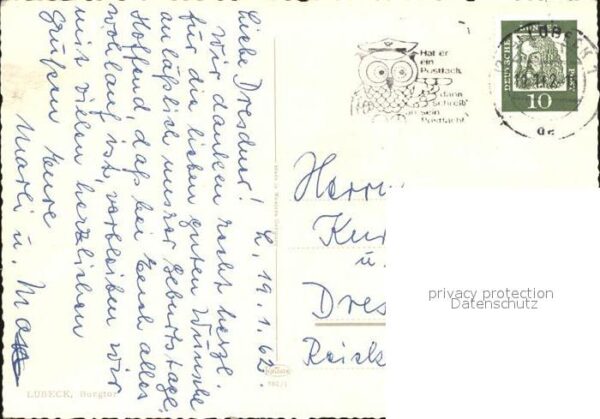 L., 19.1.62.
Liebe Dresdner!
Wir danken recht herzl.
für die lieben guten Wünsche
anläßlich unsrer Geburtstage.
Hoffend, daß bei Euch alles
wohlauf ist, verbleiben wir
mit vielen herzlichen
Grüßen Eure
Marli u.
LÜBECK, Burgtor
Hat er
ein
Postfach,
dann
schreib'
sein
Postfach!
LÜBECK
DEUTSCHE
POST
10
Herrn
Kur
u.
Dres
Reick
privacy protection
Datenschutz